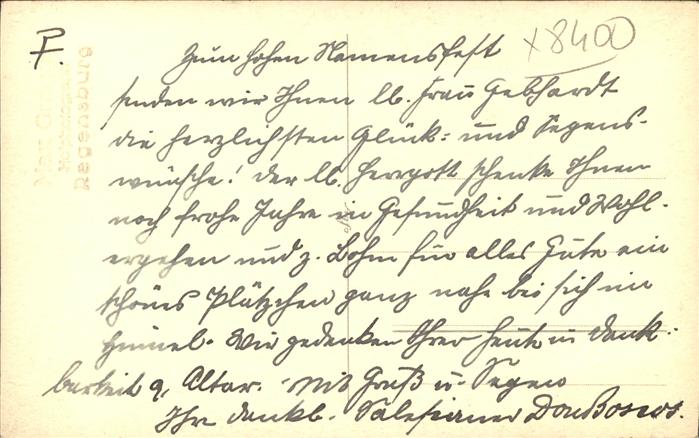 P.
x 8400
Max G
Regensburg
Zum hohen Namensfest
senden wir Ihnen lb. Frau Gebhardt
die herzlichsten Glück= und Segens-
wünsche! Der lb. Herrgott schenke Ihnen
noch frohe Jahre in Gesundheit und Wohl-
ergehen und z. Lohn für alles Gute ein
schönes Plätzchen ganz nahe bei sich im
Himmel. Wir gedenken Ihrer heute in Dank-
barkeit a. Altar. Mit Gruß u. Segen
Ihr dankb. Salesianer Don Boscos.